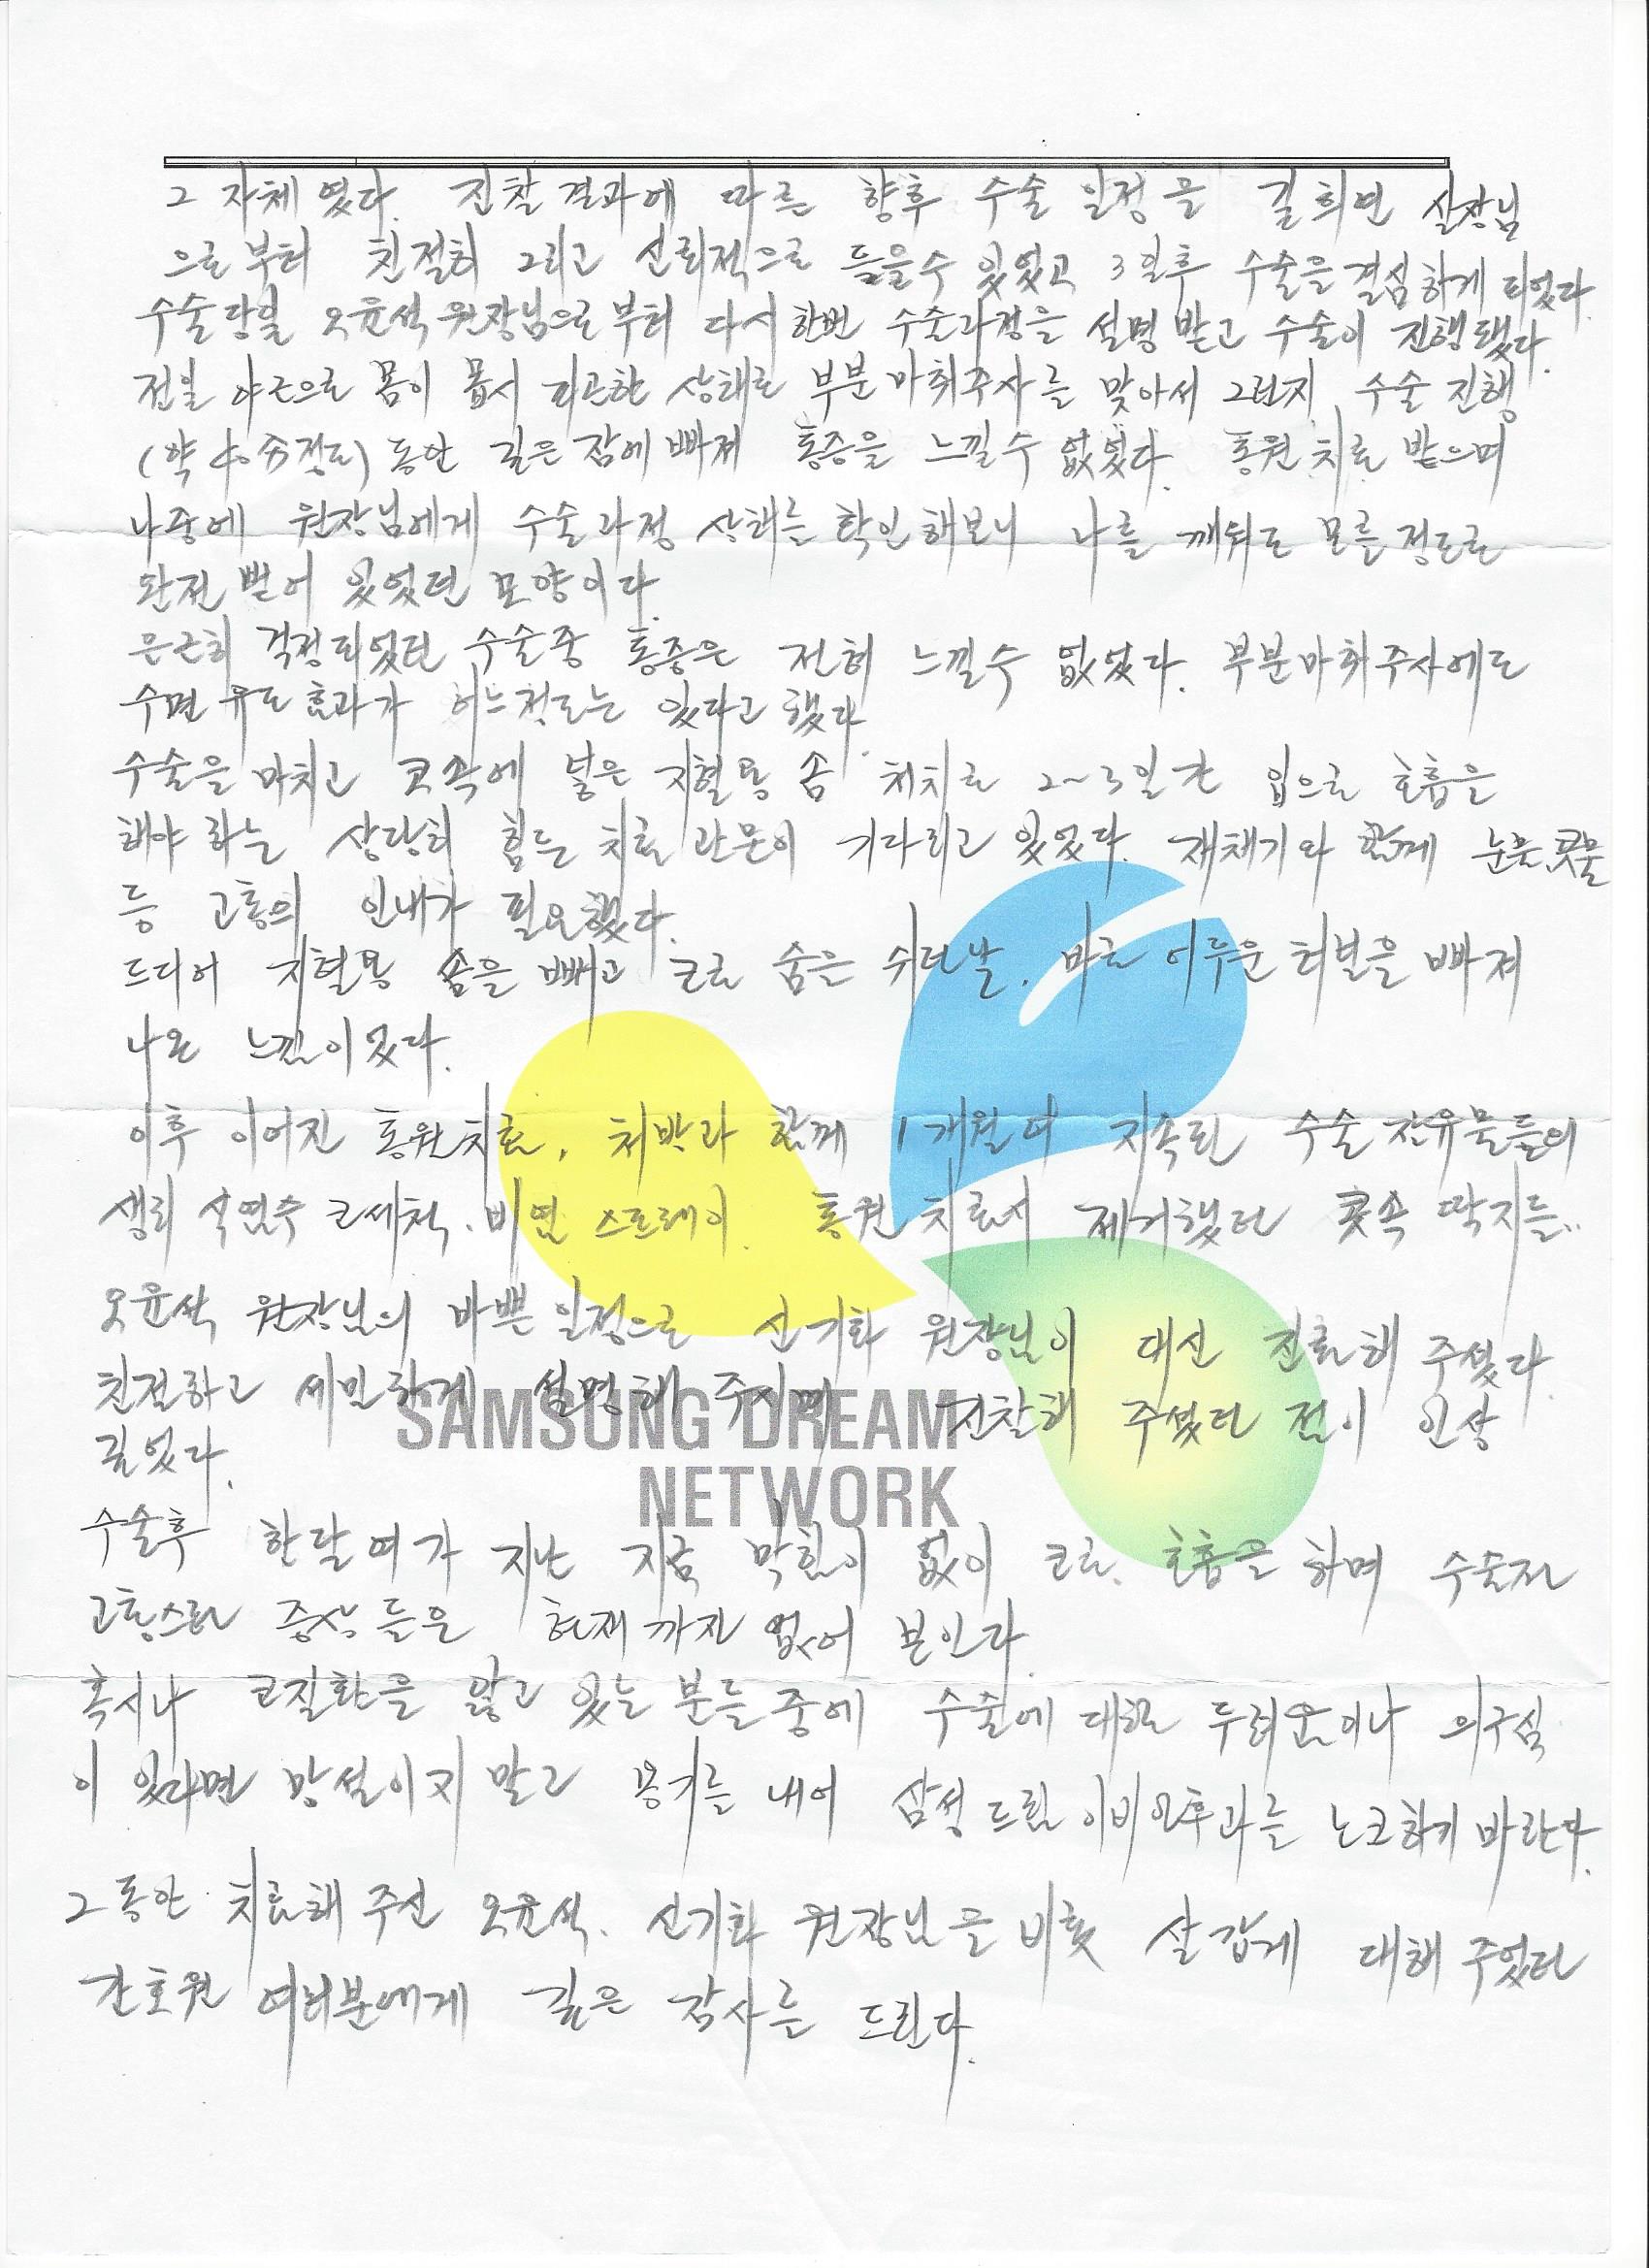 그 자체였다. 진찰결과에 따른 향후 수술 일정을 길희연 실장님
으로부터 친절히 그리고 신뢰적으로 들을수 있었고 3일후 수술을 결심하게 되었다.
수술당일 오윤석 원장님으로부터 다시한번 수술과정을 설명 받고 수술이 진행됐다.
전일 야근으로 몸이 몹시 피곤한 상태로 부분마취주사를 맞아서 그런지 수술 진행
(약 40分정도) 동안 깊은 잠에 빠져 통증을 느낄수 없었다. 통원치료 받으며
나중에 원장님에게 수술과정 상태를 확인해보니 나를 깨워도 모를 정도로
완전 뻗어 있었던 모양이다.
은근히 걱정되었던 수술중 통증은 전혀 느낄수 없었다. 부분마취주사에도
수면 유도 효과가 어느정도는 있다고 했다.
수술을 마치고 코속에 넣은 지혈용 솜 처치로 2~3일간 입으로 호흡을
해야 하는 상당히 힘든 치료 관문이 기다리고 있었다. 재채기와 함께 눈물,콧물
등 고통의 인내가 필요했다.
드디어 지혈용 솜을 빼고 코로 숨을 쉬던날. 바로 어두운 터널을 빠져
나온 느낌이었다.
이후 이어진 통원치료, 처방과 함께 1개월여 지속된 수술 잔유물들의
생리 식염수 코세척. 비염 스프레이. 통원 치료서 제거했던 콧속 딱지들..
오윤석 원장님의 바쁜 일정으로 신기화 원장님이 대신 진료해 주셨다.
친절하고 세밀하게 설명해 주시며 진찰해 주셨던 점이 인상
깊었다.
SAMSUNG DREAM
NETWORK
수술후 한달여가 지난 지금 막힘이 없이 코로 호흡을 하며 수술전
고통스런 증상들은 현재까지 없어 보인다.
혹시나 코질환을 앓고 있는 분들 중에 수술에 대한 두려움이나 의구심
이 있다면 망설이지 말고 용기를 내어 삼성드림이비인후과를 노크하기 바란다.
그동안 치료해 주신 오윤석. 신기화 원장님을 비롯 살갑게 대해 주었던
간호원 여러분에게 깊은 감사를 드린다.